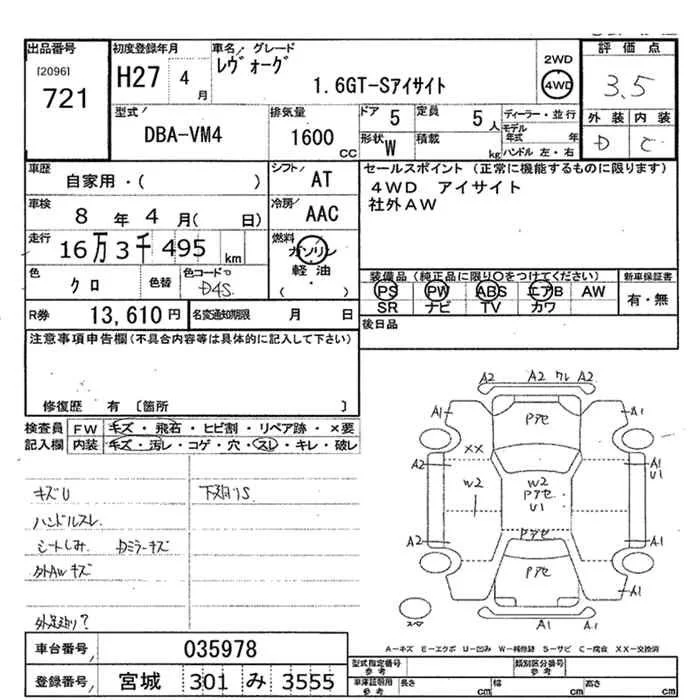 出品番号
[2096]
721
初度登録年月
H27 4 月
車名/グレード
レヴォーグ
1.6GT-Sアイサイト
2WD
4WD
評価点
3.5
外装 内装
D C
型式/
DBA-VM4
排気量
1600 CC
ドア 5
定員 5 人
形状 W
積載 kg
ディーラー・並行
モデル年式 年
ハンドル 左・右
車歴
自家用・( )
シフト/ AT
車検
8 年 4 月( 日)
冷房/ AAC
走行
16万3千495 km
燃料
ガソリン
軽油
( )
色
クロ
色替
色コード
D4S
R券 13,610円
名変通知期限 月 日
セールスポイント (正常に機能するものに限ります)
4WD アイサイト
社外AW
装備品(純正品に限り○をつけてください)
PS PW ABS エアB AW
SR ナビ TV カワ
新車保証書
有・無
後日品
注意事項申告欄(不具合内容等は具体的に記入して下さい)
修復歴 有 〔箇所 〕
検査員記入欄
FW キズ・飛石・ヒビ割・リペア跡・×要
内装 キズ・汚レ・コゲ・穴・スレ・キレ・破レ
キズU
ハンドルスレ
シートしみ Dミラーキズ
外AWキズ
下廻りS
A2 A2 ワレ A2
A1 Pアセ A1
XX
A2 A1
U1
W2 W2
Pアセ
U1
Pアセ
A2 A1
Pアセ
A1 A1
A2 A1 A1
A-キズ E-エクボ U-凹み W-補修跡 S-サビ C-腐食 XX-交換済
車台番号/ 035978
登録番号/ 宮城 301 み 3555
型式指定番号 参考
類別区分番号 参考
車庫証明用 参考
長さ cm
幅 cm
高さ cm